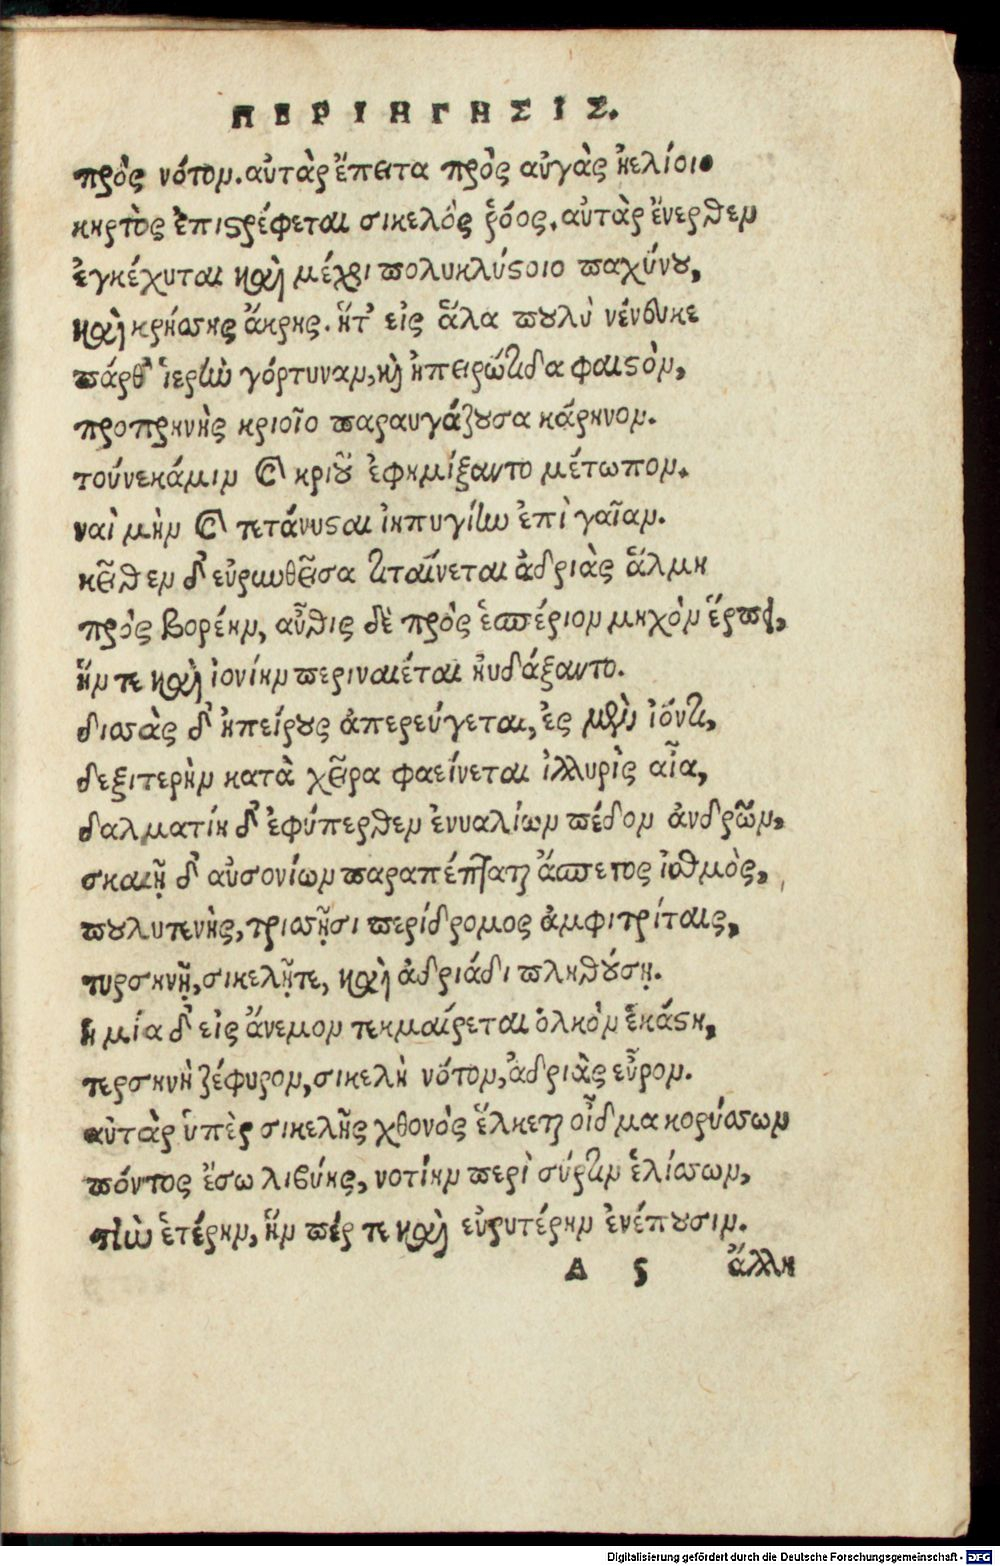 ΠΕΡΙΗΓΗΣΙΣ.
πρὸς νότον. αὐτὰρ ἔπειτα πρὸς αὐγὰς ἠελίοιο
κυρτὸς ἐπιστρέφεται σικελὸς ῥόος. αὐτὰρ ἔνερθεν
ἐγκέχυται καὶ μέχρι πολυκλύστοιο παχύνου,
καὶ κρήσσης ἄκρης. ἥτ' εἰς ἅλα πουλὺ νένδυκε
πάρθ' ἱερὴν γόρτυναν, καὶ ἠπειρώτιδα φαιστὸν,
προπρηνὴς κριοῖο παραυγάζουσα κάρηνον.
τούνεκάμιν καὶ κριοῦ ἐφημίξαντο μέτωπον.
ναὶ μὴν καὶ τετάνυσται ἰηπυγίην ἐπὶ γαῖαν.
κεῖθεν δ' εὐρωυθεῖσα τιταίνεται ἀδριὰς ἅλμη
πρὸς βορέην, αὖθις δὲ πρὸς ἑσπέριον μηχὸν ἕρπει,
ἥν τε καὶ ἰονίην περιναιέται ηὐδάξαντο.
δισσὰς δ' ἠπείρους ἀπερεύγεται, ἐς μὲν ἰόντι,
δεξιτερὴν κατὰ χεῖρα φαείνεται ἰλλυρὶς αἶα,
δαλματίη δ' ἐφύπερθεν ἐνυαλίων πέδον ἀνδρῶν,
σκαιῇ δ' αὐσονίων παραπέπταται ἄσπετος ἰσθμὸς,
πουλυτενὴς, τρισσῇσι περίδρομος ἀμφιτρίταις,
τυρσηνῇ, σικελῇτε, καὶ ἀδριάδι πληθύσῃ.
ἡ μία δ' εἰς ἄνεμον τεκμαίρεται ὁλκὸν ἑκάστη,
τερσηνὴ ζέφυρον, σικελὴ νότον, ἀδριὰς εὖρον.
αὐτὰρ ὑπὲρ σικελῆς χθονὸς ἕλκεται οἶδμα κορύσσων
πόντος ἔσω λιβύης, νοτίην περὶ σύρτιν ἑλίσσων,
τὴν ἑτέρην, ἥν πέρ τε καὶ εὐρυτέρην ἐνέπουσιν.
Α ϛ ἄλλη
Digitalisierung gefördert durch die Deutsche Forschungsgemeinschaft - DFG